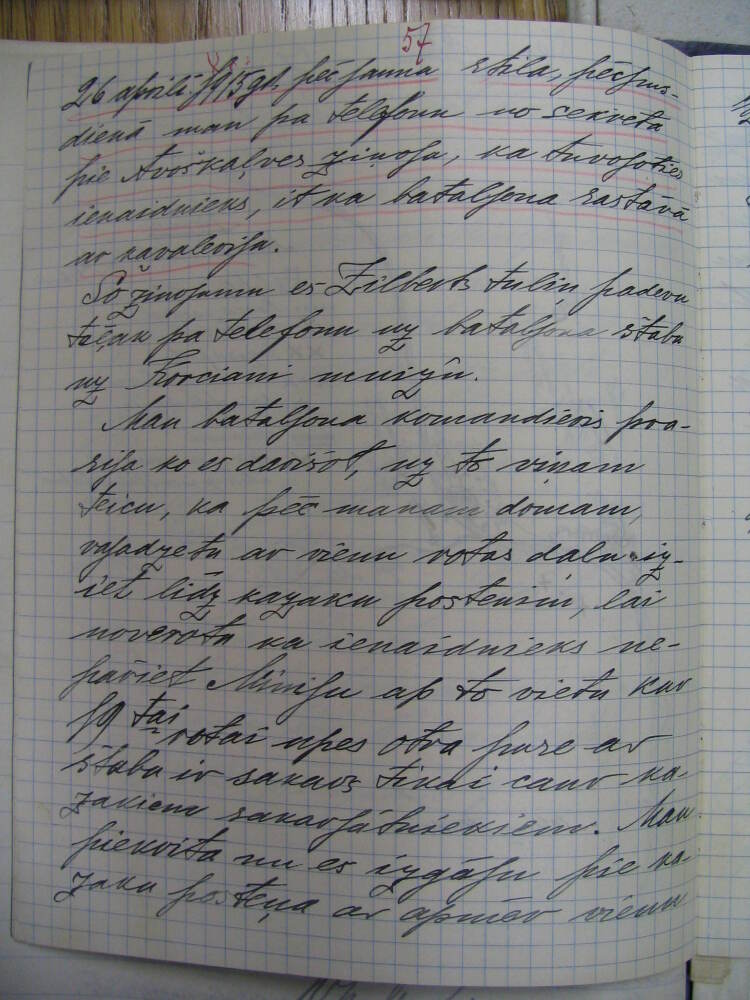 57
26 aprilī 1915 gd. pēc jauna stila, pēcpus-
dienā man pa telefonu no sekreta
pie Avoškalves ziņoja, ka tuvojoties
ienaidnieks, it ka bataljona sastāvā
ar kavaleriju.
Šo ziņojumu es Zilberts tuliņ padevu
tāļak pa telefonu uz bataljona štabu
uz muižu.
Man bataljona komandieris pra-
sija ko es darišot, uz to viņam
teicu, ka pēc manam domam,
vajadzetu ar vienu rotas daļu iz-
iet līdz kazaku postenim, lai
noverotu ka ienaidnieks ne-
pāriet Miniju ap to vietu kur
19 tai rotai upes otra puse ar
štabu ir sakars tikai caur ka-
zakiem sakarjātniekiem. Man
piekrita un es izgāju pie ka-
zaku posteņa ar apmēr vienu